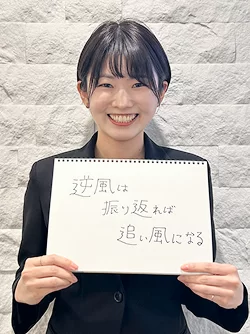 逆風は
振り返れば
追い風になる